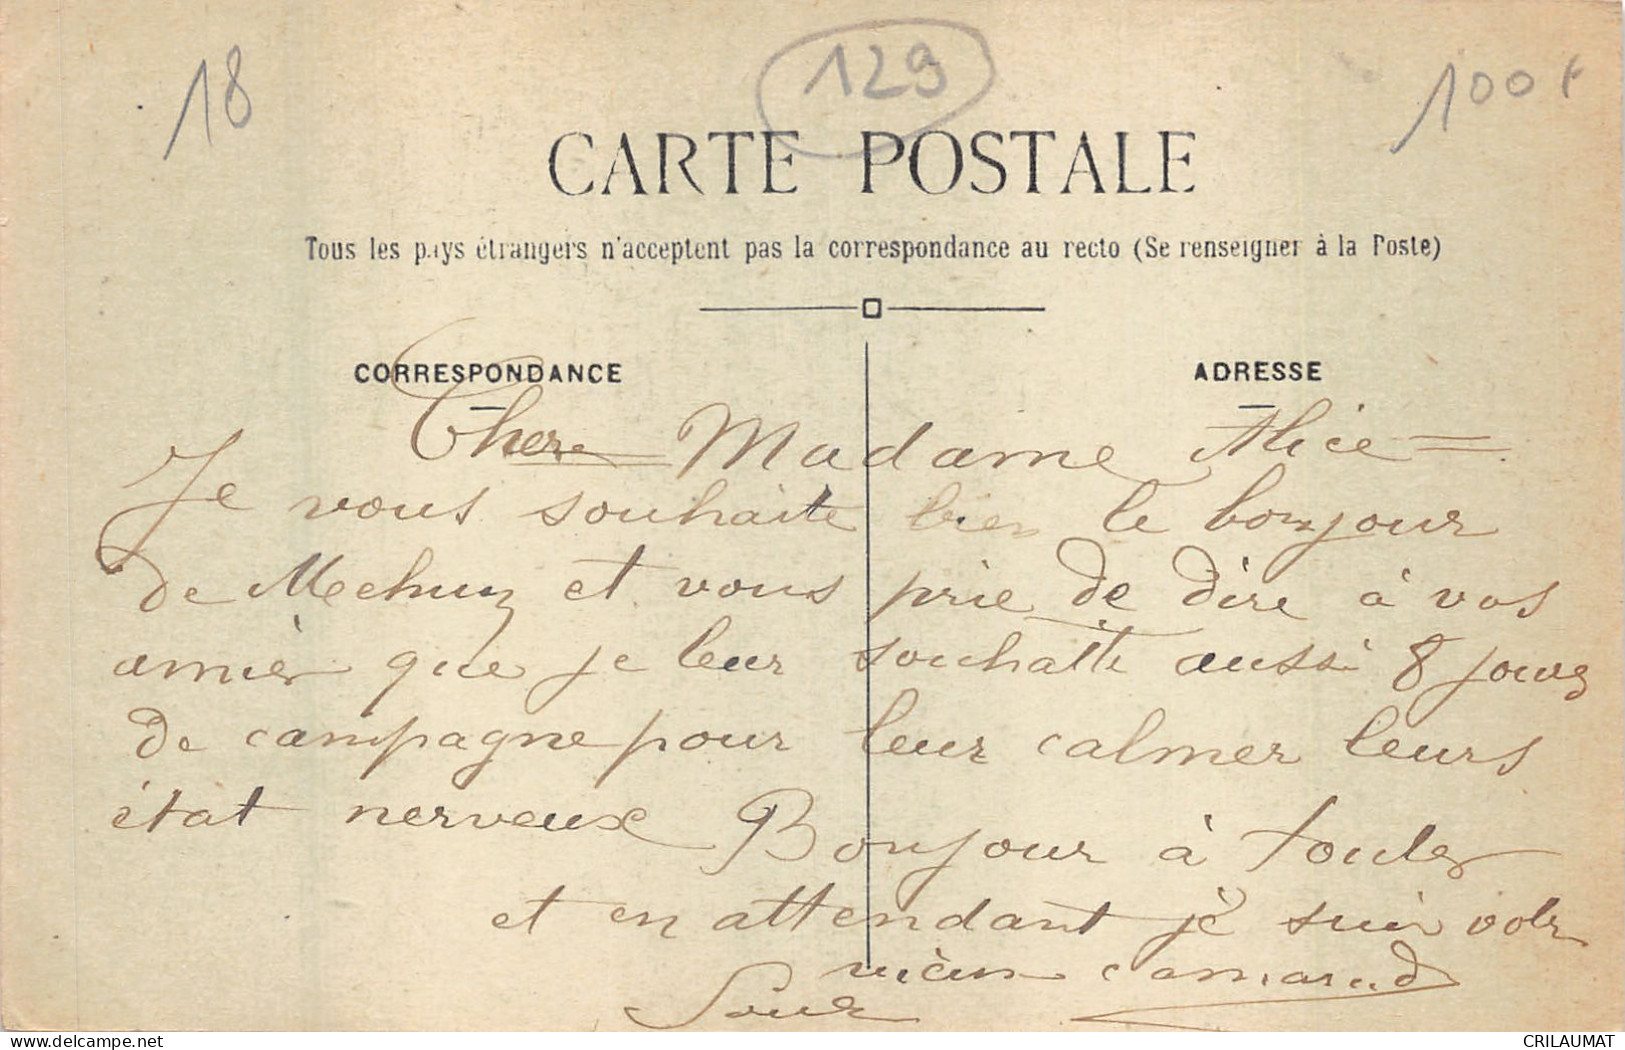 18
129
100 f
CARTE POSTALE
Tous les pays étrangers n'acceptent pas la correspondance au recto (Se renseigner à la Poste)
CORRESPONDANCE
ADRESSE
Chere Madame Alice
Je vous souhaite bien le bonjour
de Mehun et vous prie de dire à vos
amies que je leur souhaite aussi 8 jours
de campagne pour leur calmer leurs
état nerveux Bonjour à toutes
et en attendant je suis votre
vieux camarad
delcampe.net
CRILAUMAT